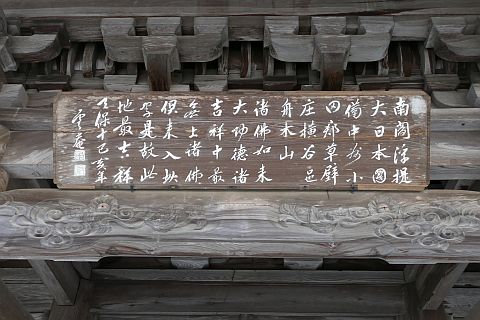 南閻浮提
大日本國
備中州小
田郡草壁
庄横谷邑
舟木山
諸佛如来
大功徳諸
吉祥中最
無上諸佛
倶来入此
処是故此
地最吉祥
天保十己亥年